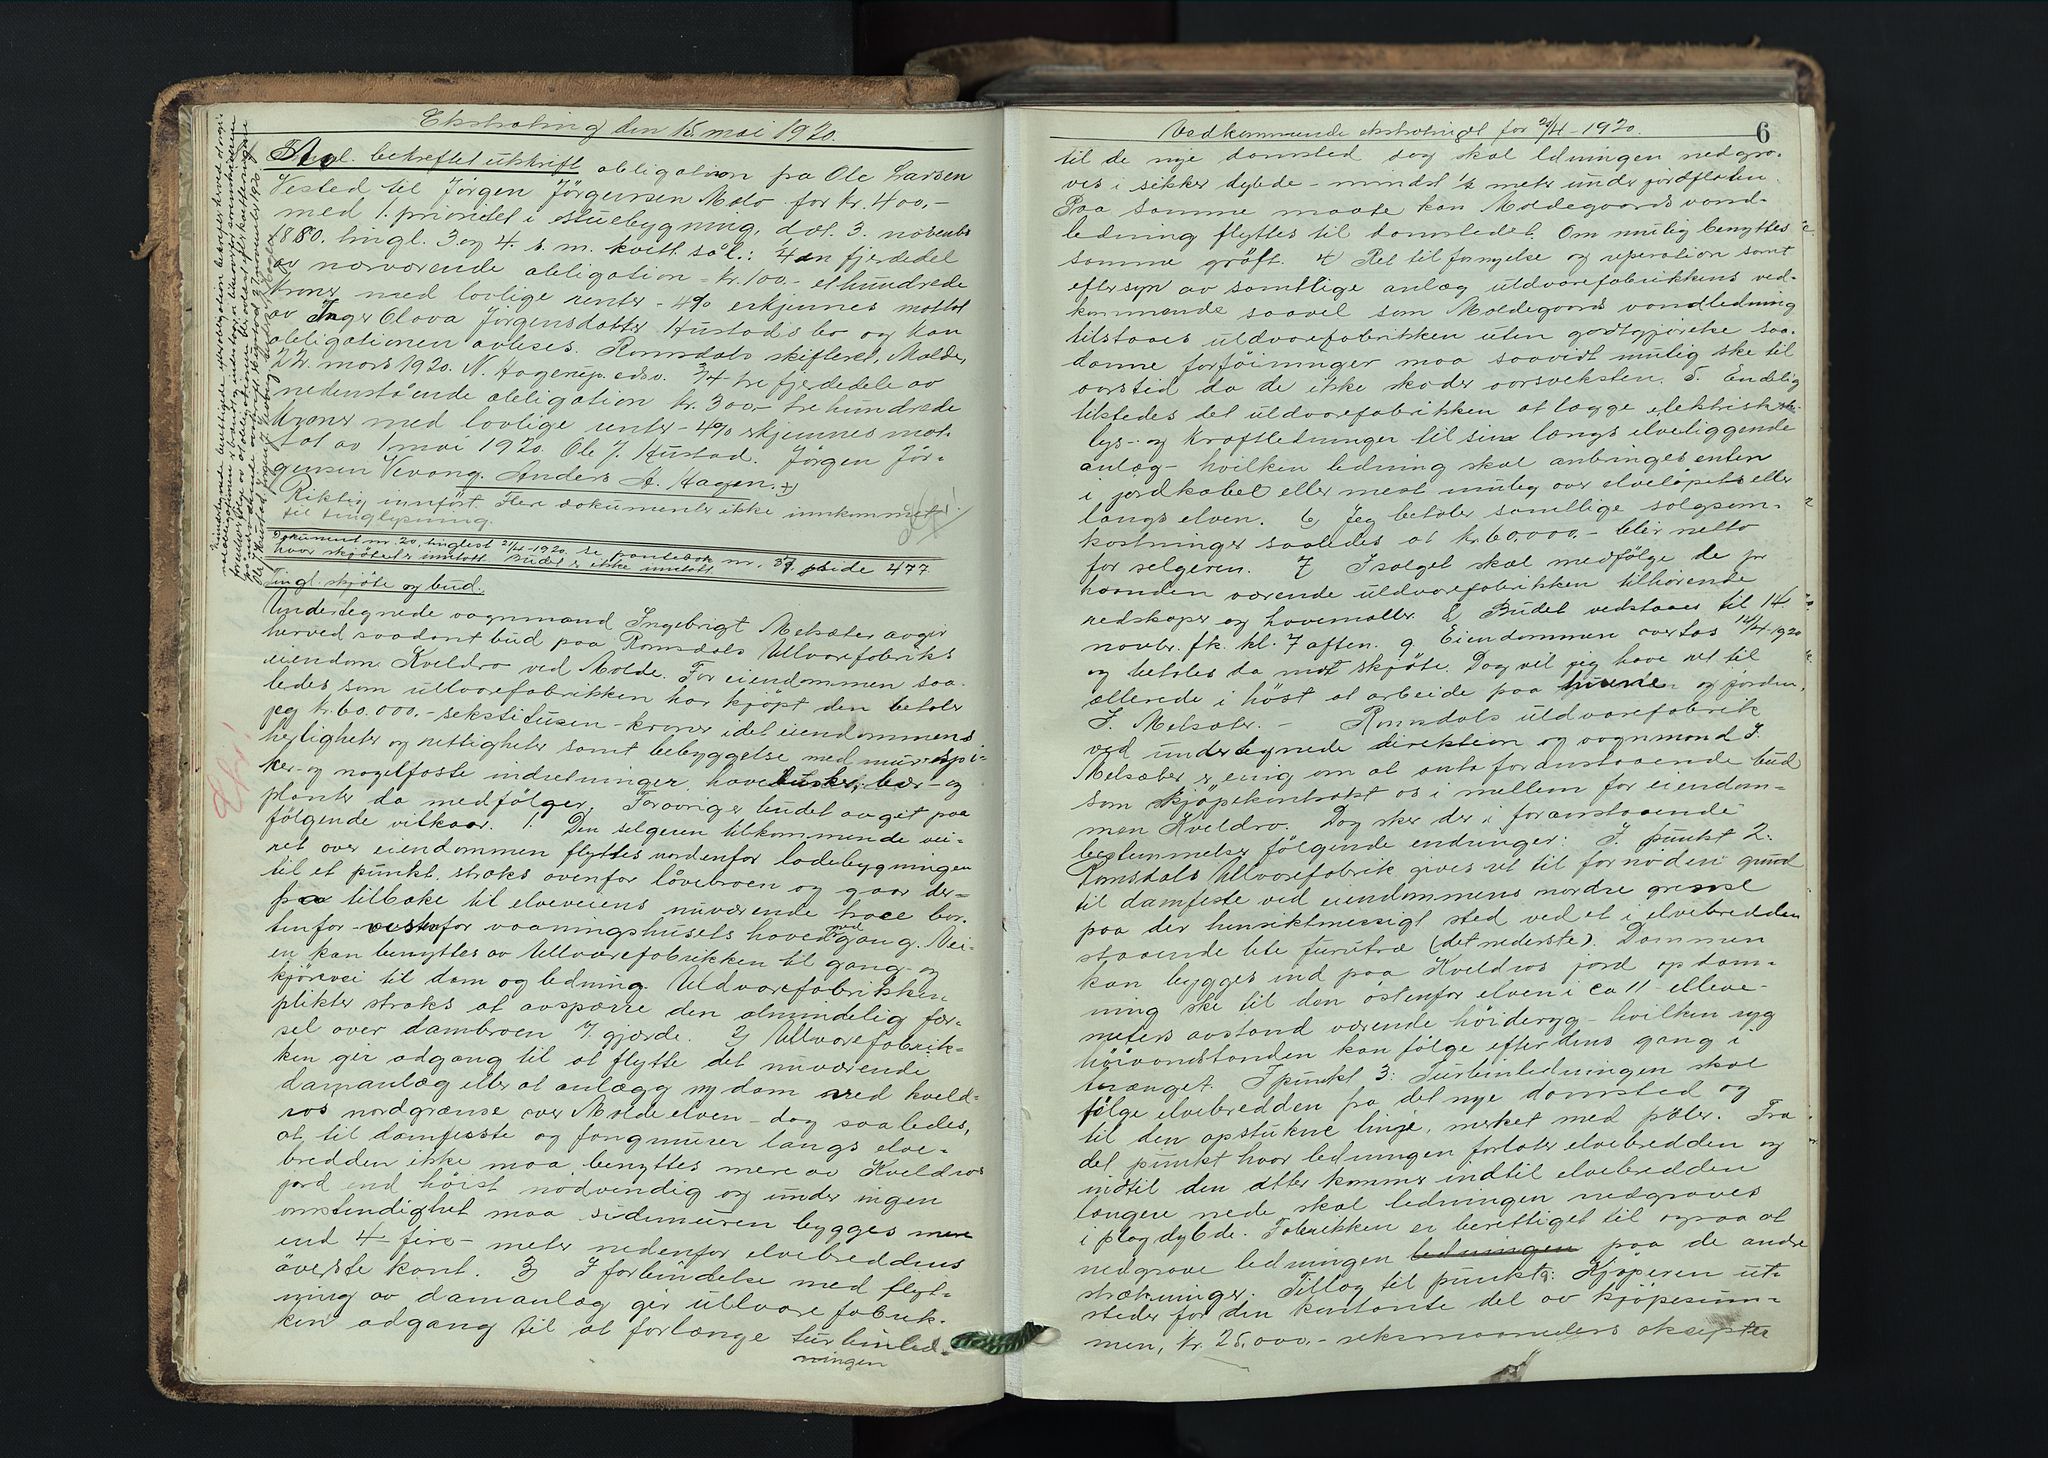 Ekstrating den 15. mai 1920.
Tingl. bekreftet utskrift obligation paa Ole Larsen
Vested til Jörgen Jörgensen Molo for kr. 400,-
med 1. prioritet i stuebygning, dat. 3. novembr
1880, tingl. 3 og 4. s. m. kvitt. sål.: 1/4 en fjerdedel
av nærværende obligation - kr. 100 - et hundrede
kroner med lovlige renter - 4% erkjennes mottat
av Inger Olava Jörgensdatter Hustads bo og kan
obligationen avleses. Romsdals skifteret, Molde,
22. mars 1920. N. Hagerup. edsv. 3/4 tre fjerdedele av
nedenstående obligation kr. 300 - tre hundrede
kroner med lovlige renter - 4% erkjennes mot-
tat av 1 mai 1920. Ole J. Hustad. Jörgen Jör-
gensen Vevang. Anders A. Hagen.
Riktig innfört. Flere dokumenter ikke innkommet
til tinglysning.
Dokument nr. 20, tinglest 21/4-1920. Se pantebok nr. 37 side 477
hvor skjötet er inntatt. Budet er ikke inntatt.
Tingl. skjöte og bud.
Undertegnede vognmand Ingebrigt Melsæter avgir
herved saadant bud paa Romsdals Uldvarefabriks
eiendom Kveldro ved Molde. For eiendommen saa-
ledes som uldvarefabrikken har kjøpt den betaler
jeg kr. 60.000,- sekstitusen - kroner idet eiendommens
herligheter og rettigheter samt bebyggelse med mur- spi-
ker- og nagelfaste indretninger, havebusker, bær- og
planter da medfölger. Forövrig er budet avgit paa
fölgende vilkaar. 1. Den selgeren tilkommende vei-
ret over eiendommen flyttes nordenfor ladebygningen
til et punkt straks ovenfor låvebroen og gaar der-
fra tilbake til elveveiens nuværende trace bor-
tenfor - vestenfor vaaningshusets hovedgang. Vei-
en kan benyttes av Uldvarefabrikken til gang- og
kjörevei til dam og ledning. Uldvarefabrikken
plikter straks at avspærre den almindelig fær-
sel over dambroen i gjærde. 2) Ullvarefabrik-
ken gir adgang til at flytte det nuværende
damanlæg eller at anlægg ny dam ved Kveld-
ros nordgrænse over Moldeelven - dog saaledes,
at til damfeste og fangmurer langs elve-
bredden ikke maa benyttes mere av Kveldros
jord end höist nødvendig og under ingen
omstendighet maa sidemuren bygges mere
end 4 - fire - meter nedenfor elvebreddens
överste kant. 3) I forbindelse med flyt-
ning av damanlæg gir ullvarefabrik-
ken adgang til at forlænge turbinled-
ningen
Vedkommende ekstratinget for 21/4-1920.
6
til de nye damsted dog skal ledningen nedgra-
ves i sikker dybde - mindst 1/2 meter under jordflaten.
Paa samme maate kan Moldegaards vand-
ledning flyttes til damstedet. Om mulig benyttes
samme gröft. 4 Ret til fornyelse og reperation samt
eftersyn av samtlige anlæg uldvarefabrikkens ved-
kommende saavel som Moldegaards vandledning
tilstaaes uldvarefabrikken uten godtgjørelse saa-
danne forföininger maa saavidt mulig ske til
aarstid da de ikke skader aarsveksten. 5. Endelig
tilstedes det uldvarefabrikken at lægge elektrisk
lys- og kraftledninger til sine langs elven liggende
anlæg - hvilken ledning skal anbringes enten
i jordkabel eller mest mulig over elveløpet eller
langs elven. 6 Jeg betaler samtlige salgsom-
kostninger saaledes at kr. 60.000,- blir netto
for selgeren. 7 I salget skal medfölge de for
haanden værende uldvarefabrikken tilhörende
redskaper og havemøbler. 8 Budet vedstaaes til 14
novbr. fk. kl. 7 aften. 9 Eiendommen overtas 14/4-1920
og betales da mot skjöte. Dog vil jeg have ret til
allerede i höst at arbeide paa husene og jorden.
I. Melsæter. - Romsdals uldvarefabrik
ved undertegnede direktion og vognmand I.
Melsæter er enig om at anta foranstaaende bud
som kjöpekontrakt os i mellem for eiendom-
men Kveldro. Dog sker der i foranstaaende
bestemmelser fölgende endringer: I. punkt 2.
Romsdals Ullvarefabrik gives ret til fornöden grund
til damfeste ved eiendommens nordre grense
paa der hensiktmessigt sted ved et i elvebredden
staaende lite furutræ (det nederste). Dammen
kan bygges ind paa Kveldros jord opdæm-
ning ske til den östenfor elven i ca 11 - elleve -
meters avstand værende höideryg - hvilken ryg
höivandstanden kan fölge efter dens gang i
terrænget. I punkt 3: Turbinledningen skal
fölge elvebredden fra det nye damsted og
til den opstukne linje, merket med pæler. Fra
det punkt hvor ledningen forlater elvebredden og
indtil den atter kommer indtil elvebredden
længere nede skal ledningen nedgraves
i plogdybde. Fabrikken er berettiget til ogsaa at
nedgrave ledningen ledningen paa de andre
strækninger. Tillæg til punkt 9: Kjöperen ut-
steder for den kontante del av kjöpesum-
men, kr. 25.000,- seksmaaneders aksepter